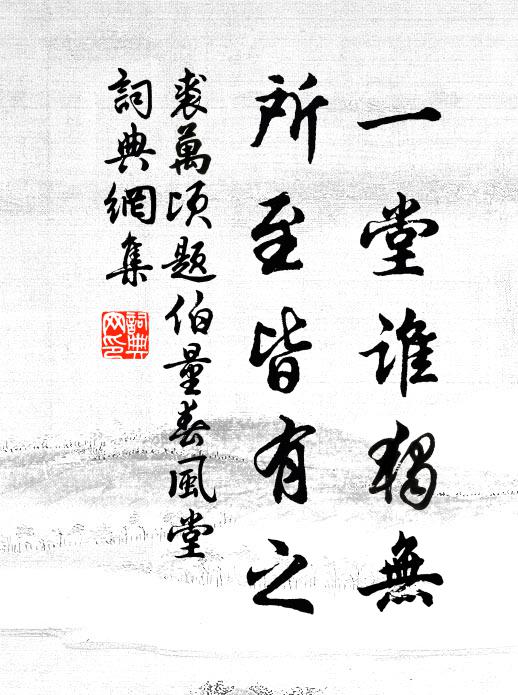 一堂誰獨無
所至皆有之
裘萬頃題伯量春風堂
詞典網集
詞典
网印